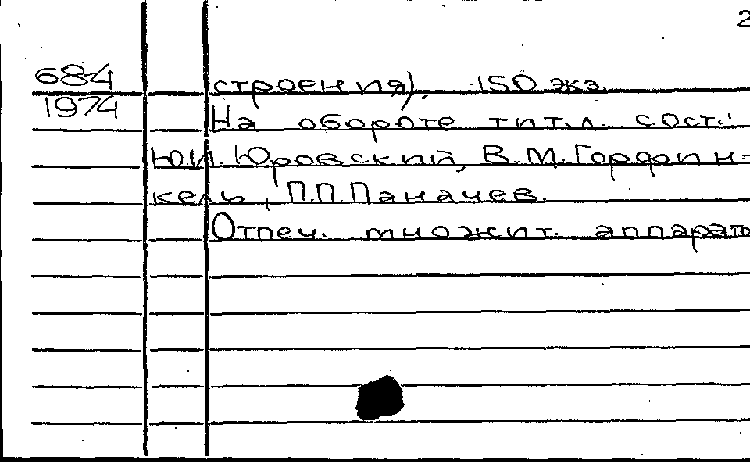 2
684
1974
строения). 150 экз.
На обороте тит.л. сост.:
Ю.И. Юровский, В.М. Гордин-
кель, П.П. Паначев.
Отпеч. множит. аппарат